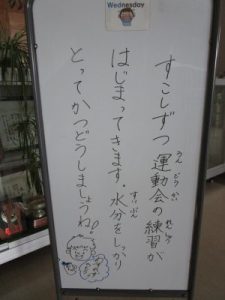 Wednesday
すこしずつ運動会の練習が
うんどうかい れんしゅう
はじまってきます。水分をしっかり
すいぶん
とってかつどうしましょうね!!